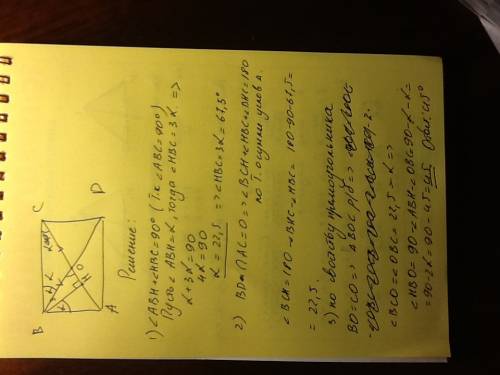 B
C
A
D
O
H
Решение:
1) <ABH+<HBC=90° (т.к <ABC=90°)
Пусть <ABH=α, тогда <HBC=3α =>
α+3α=90
4α=90
α=22,5 => <HBC=3α=67,5°
2) BD∩AC=O => <BCH+<HBC+<BHC=180
по т. о сумме углов Δ.
<BCH=180-<BHC-<HBC=180-90-67,5=
=22,5.
3) по свойству прямоугольника
BO=CO => ΔBOC р/б =>
<BCO=<OBC=22,5=α =>
<HBO=90-<ABH-<OBC=90-α-α=
=90-2α=90-45=45